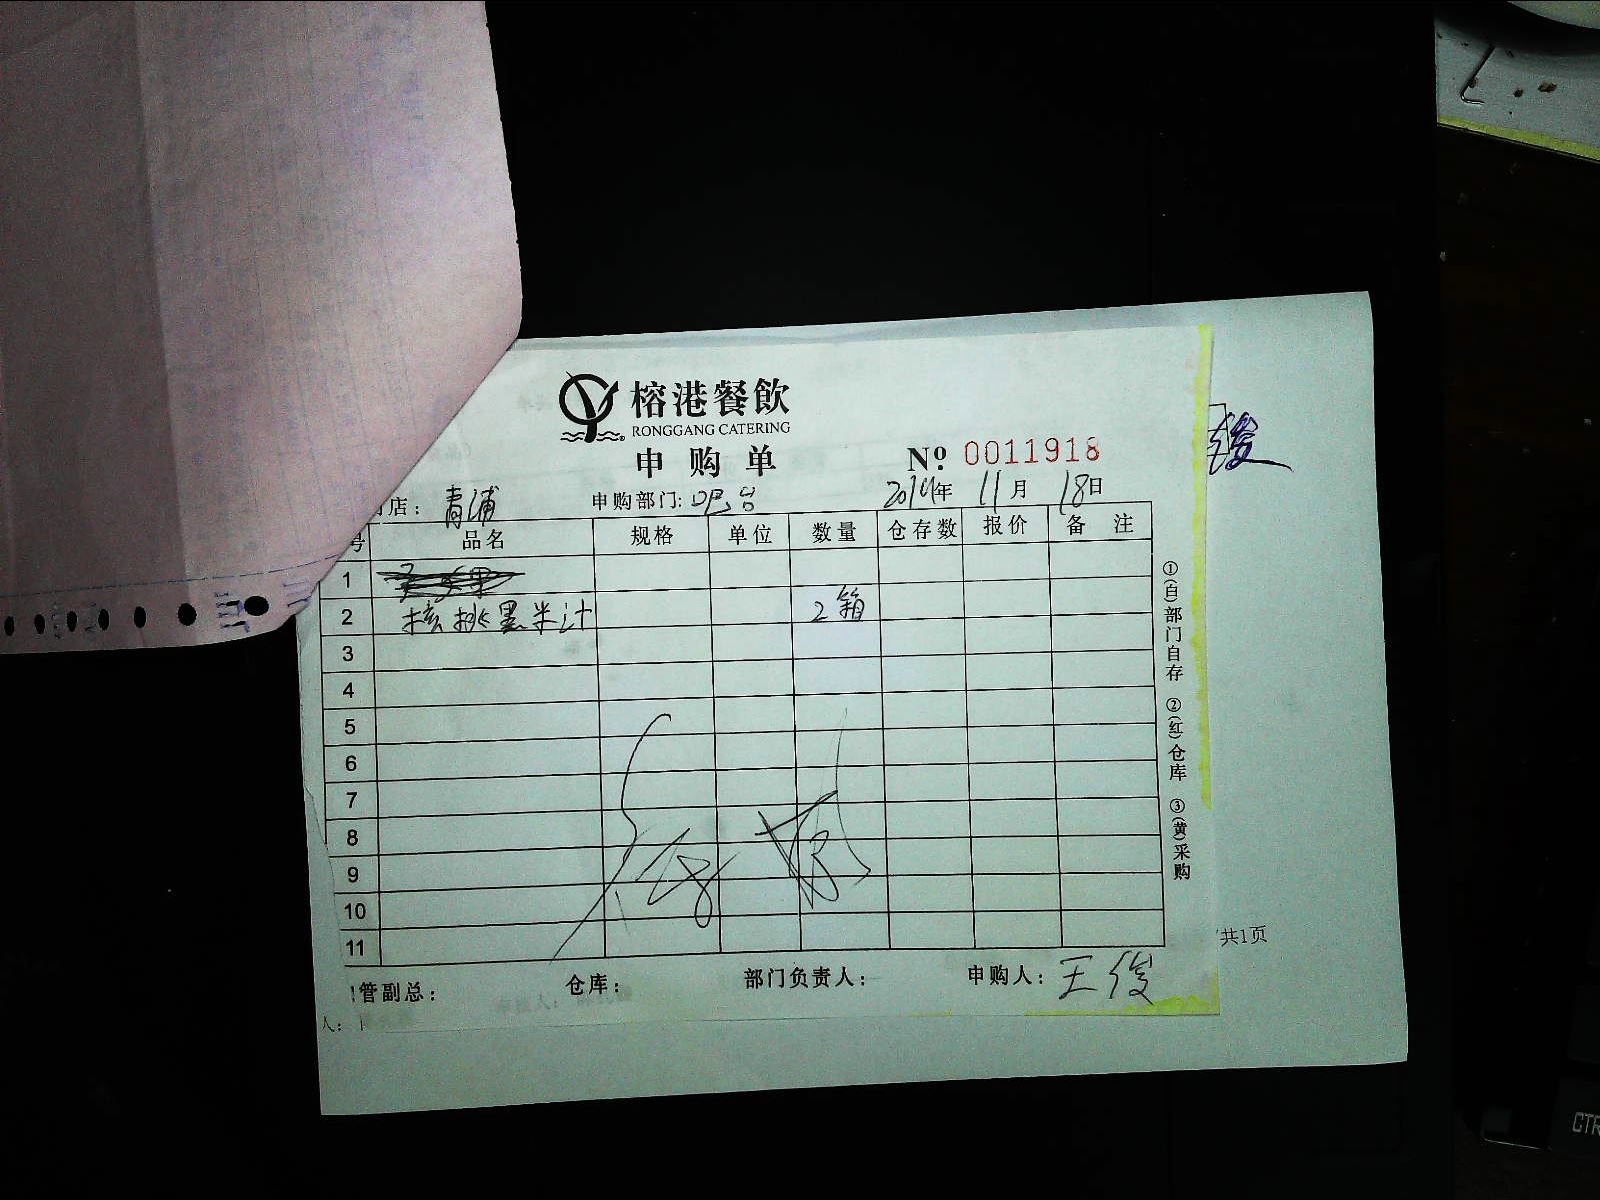 榕港餐飲
RONGGANG CATERING
申购单
Nº 0011918
店：青浦 申购部门：吧台 2014年 11月 18日
号 品名 规格 单位 数量 仓存数 报价 备注
1
2 核挑黑米汁 2箱
3
4
5
6
7
8
9
10
11
管副总： 仓库： 部门负责人： 申购人：王俊
①(自)部门自存 ②(红)仓库 ③(黄)采购
俊
共1页
人：
CTR